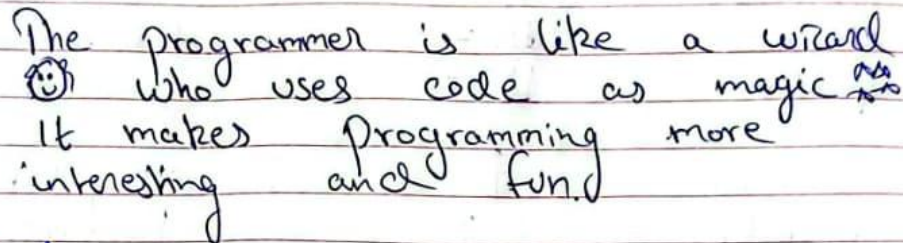 The programmer is like a wizard
who uses code as magic
It makes Programming more
interesting and fun.